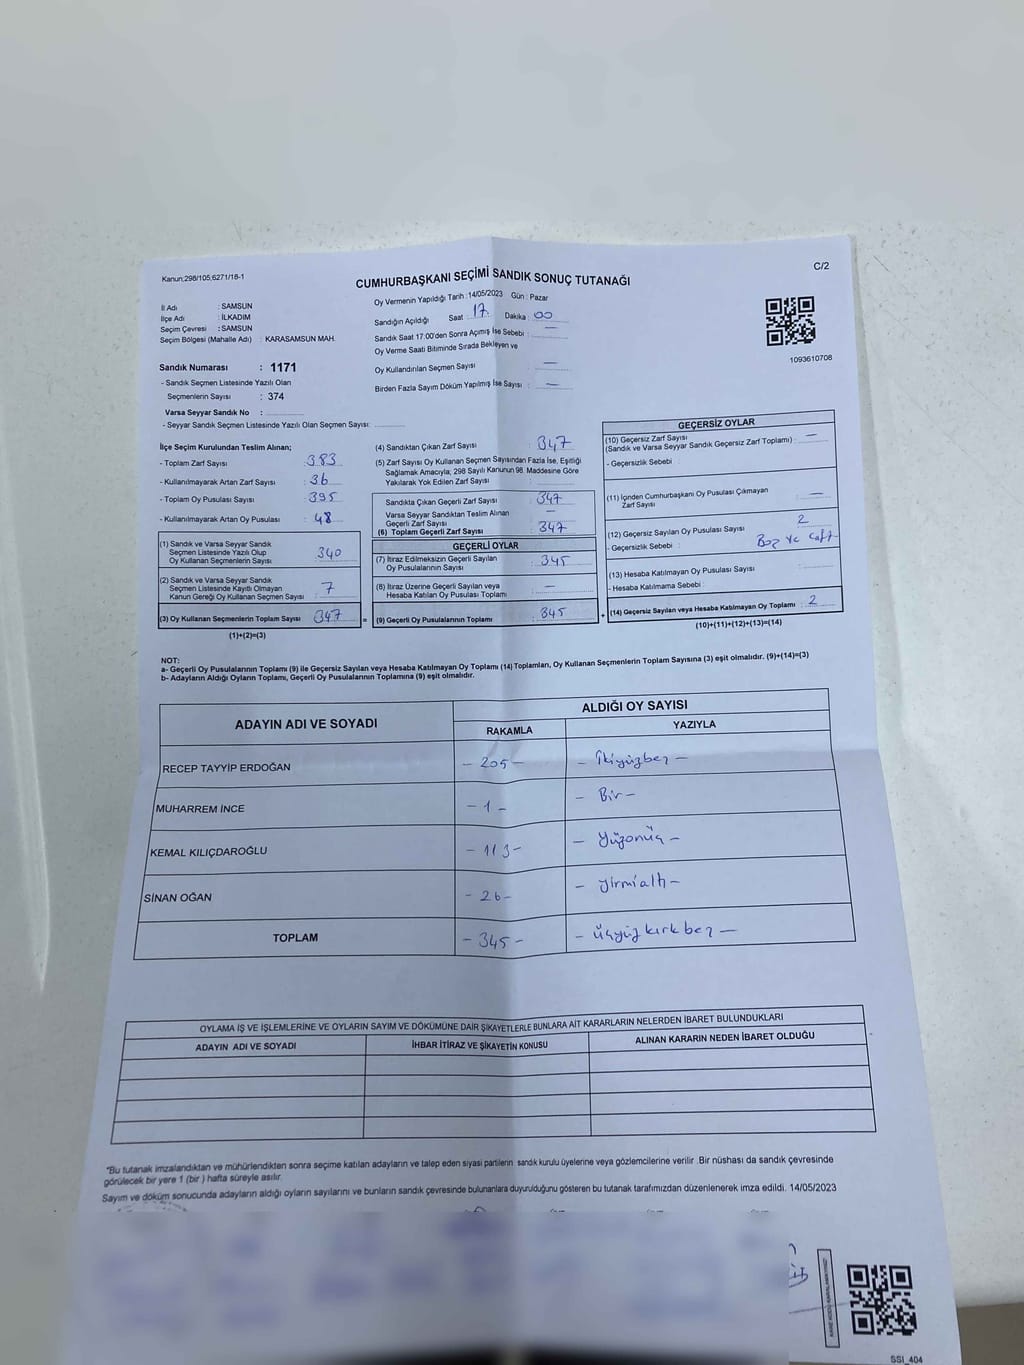 Kanun;298/105;6271/18-1
C/2
CUMHURBAŞKANI SEÇİMİ SANDIK SONUÇ TUTANAĞI
İl Adı : SAMSUN
İlçe Adı : İLKADIM
Seçim Çevresi : SAMSUN
Seçim Bölgesi (Mahalle Adı) : KARASAMSUN MAH.
Oy Vermenin Yapıldığı Tarih :14/05/2023 Gün : Pazar
Sandığın Açıldığı Saat : 17 Dakika : 00
Sandık Saat 17:00'den Sonra Açımış İse Sebebi : —
Oy Verme Saati Bitiminde Sırada Bekleyen ve
Oy Kullandırılan Seçmen Sayısı : —
Birden Fazla Sayım Döküm Yapılmış İse Sayısı : —
1093610708
Sandık Numarası : 1171
- Sandık Seçmen Listesinde Yazılı Olan
Seçmenlerin Sayısı : 374
Varsa Seyyar Sandık No :
- Seyyar Sandık Seçmen Listesinde Yazılı Olan Seçmen Sayısı:
İlçe Seçim Kurulundan Teslim Alınan;
- Toplam Zarf Sayısı : 383
- Kullanılmayarak Artan Zarf Sayısı : 36
- Toplam Oy Pusulası Sayısı : 395
- Kullanılmayarak Artan Oy Pusulası : 48
(1) Sandık ve Varsa Seyyar Sandık
Seçmen Listesinde Yazılı Olup
Oy Kullanan Seçmenlerin Sayısı : 340
(2) Sandık ve Varsa Seyyar Sandık
Seçmen Listesinde Kayıtlı Olmayan
Kanun Gereği Oy Kullanan Seçmen Sayısı : 7
(3) Oy Kullanan Seçmenlerin Toplam Sayısı : 347
(1)+(2)=(3)
(4) Sandıktan Çıkan Zarf Sayısı : 347
(5) Zarf Sayısı Oy Kullanan Seçmen Sayısından Fazla İse, Eşitliği
Sağlamak Amacıyla; 298 Sayılı Kanunun 98. Maddesine Göre
Yakılarak Yok Edilen Zarf Sayısı :
Sandıkta Çıkan Geçerli Zarf Sayısı : 347
Varsa Seyyar Sandıktan Teslim Alınan
Geçerli Zarf Sayısı : —
(6) Toplam Geçerli Zarf Sayısı : 347
GEÇERLİ OYLAR
(7) İtiraz Edilmeksizin Geçerli Sayılan
Oy Pusulalarının Sayısı : 345
(8) İtiraz Üzerine Geçerli Sayılan veya
Hesaba Katılan Oy Pusulası Toplamı : —
= (9) Geçerli Oy Pusulalarının Toplamı : 345
GEÇERSİZ OYLAR
(10) Geçersiz Zarf Sayısı
(Sandık ve Varsa Seyyar Sandık Geçersiz Zarf Toplamı) : —
- Geçersizlik Sebebi :
(11) İçinden Cumhurbaşkanı Oy Pusulası Çıkmayan
Zarf Sayısı : —
(12) Geçersiz Sayılan Oy Pusulası Sayısı : 2
- Geçersizlik Sebebi : Boş ve
(13) Hesaba Katılmayan Oy Pusulası Sayısı :
- Hesaba Katılmama Sebebi :
+ (14) Geçersiz Sayılan veya Hesaba Katılmayan Oy Toplamı : 2
(10)+(11)+(12)+(13)=(14)
NOT:
a- Geçerli Oy Pusulalarının Toplamı (9) ile Geçersiz Sayılan veya Hesaba Katılmayan Oy Toplamı (14) Toplamları, Oy Kullanan Seçmenlerin Toplam Sayısına (3) eşit olmalıdır. (9)+(14)=(3)
b- Adayların Aldığı Oyların Toplamı, Geçerli Oy Pusulalarının Toplamına (9) eşit olmalıdır.
ADAYIN ADI VE SOYADI ALDIĞI OY SAYISI
RAKAMLA YAZIYLA
RECEP TAYYİP ERDOĞAN - 205 - - İkiyüzbeş -
MUHARREM İNCE - 1 - - Bir -
KEMAL KILIÇDAROĞLU - 113 - - Yüzonüç -
SİNAN OĞAN - 26 - - yirmialtı -
TOPLAM - 345 - - üçyüzkırkbeş -
OYLAMA İŞ VE İŞLEMLERİNE VE OYLARIN SAYIM VE DÖKÜMÜNE DAİR ŞİKAYETLERLE BUNLARA AİT KARARLARIN NELERDEN İBARET BULUNDUKLARI
ADAYIN ADI VE SOYADI İHBAR İTİRAZ VE ŞİKAYETİN KONUSU ALINAN KARARIN NEDEN İBARET OLDUĞU
"Bu tutanak imzalandıktan ve mühürlendikten sonra seçime katılan adayların ve talep eden siyasi partilerin sandık kurulu üyelerine veya gözlemcilerine verilir .Bir nüshası da sandık çevresinde
görülecek bir yere 1 (bir ) hafta süreyle asılır.
Sayım ve döküm sonucunda adayların aldığı oyların sayılarını ve bunların sandık çevresinde bulunanlara duyurulduğunu gösteren bu tutanak tarafımızdan düzenlenerek imza edildi. 14/05/2023
KARE KODU KARALAMAYINIZ!
SSI_404